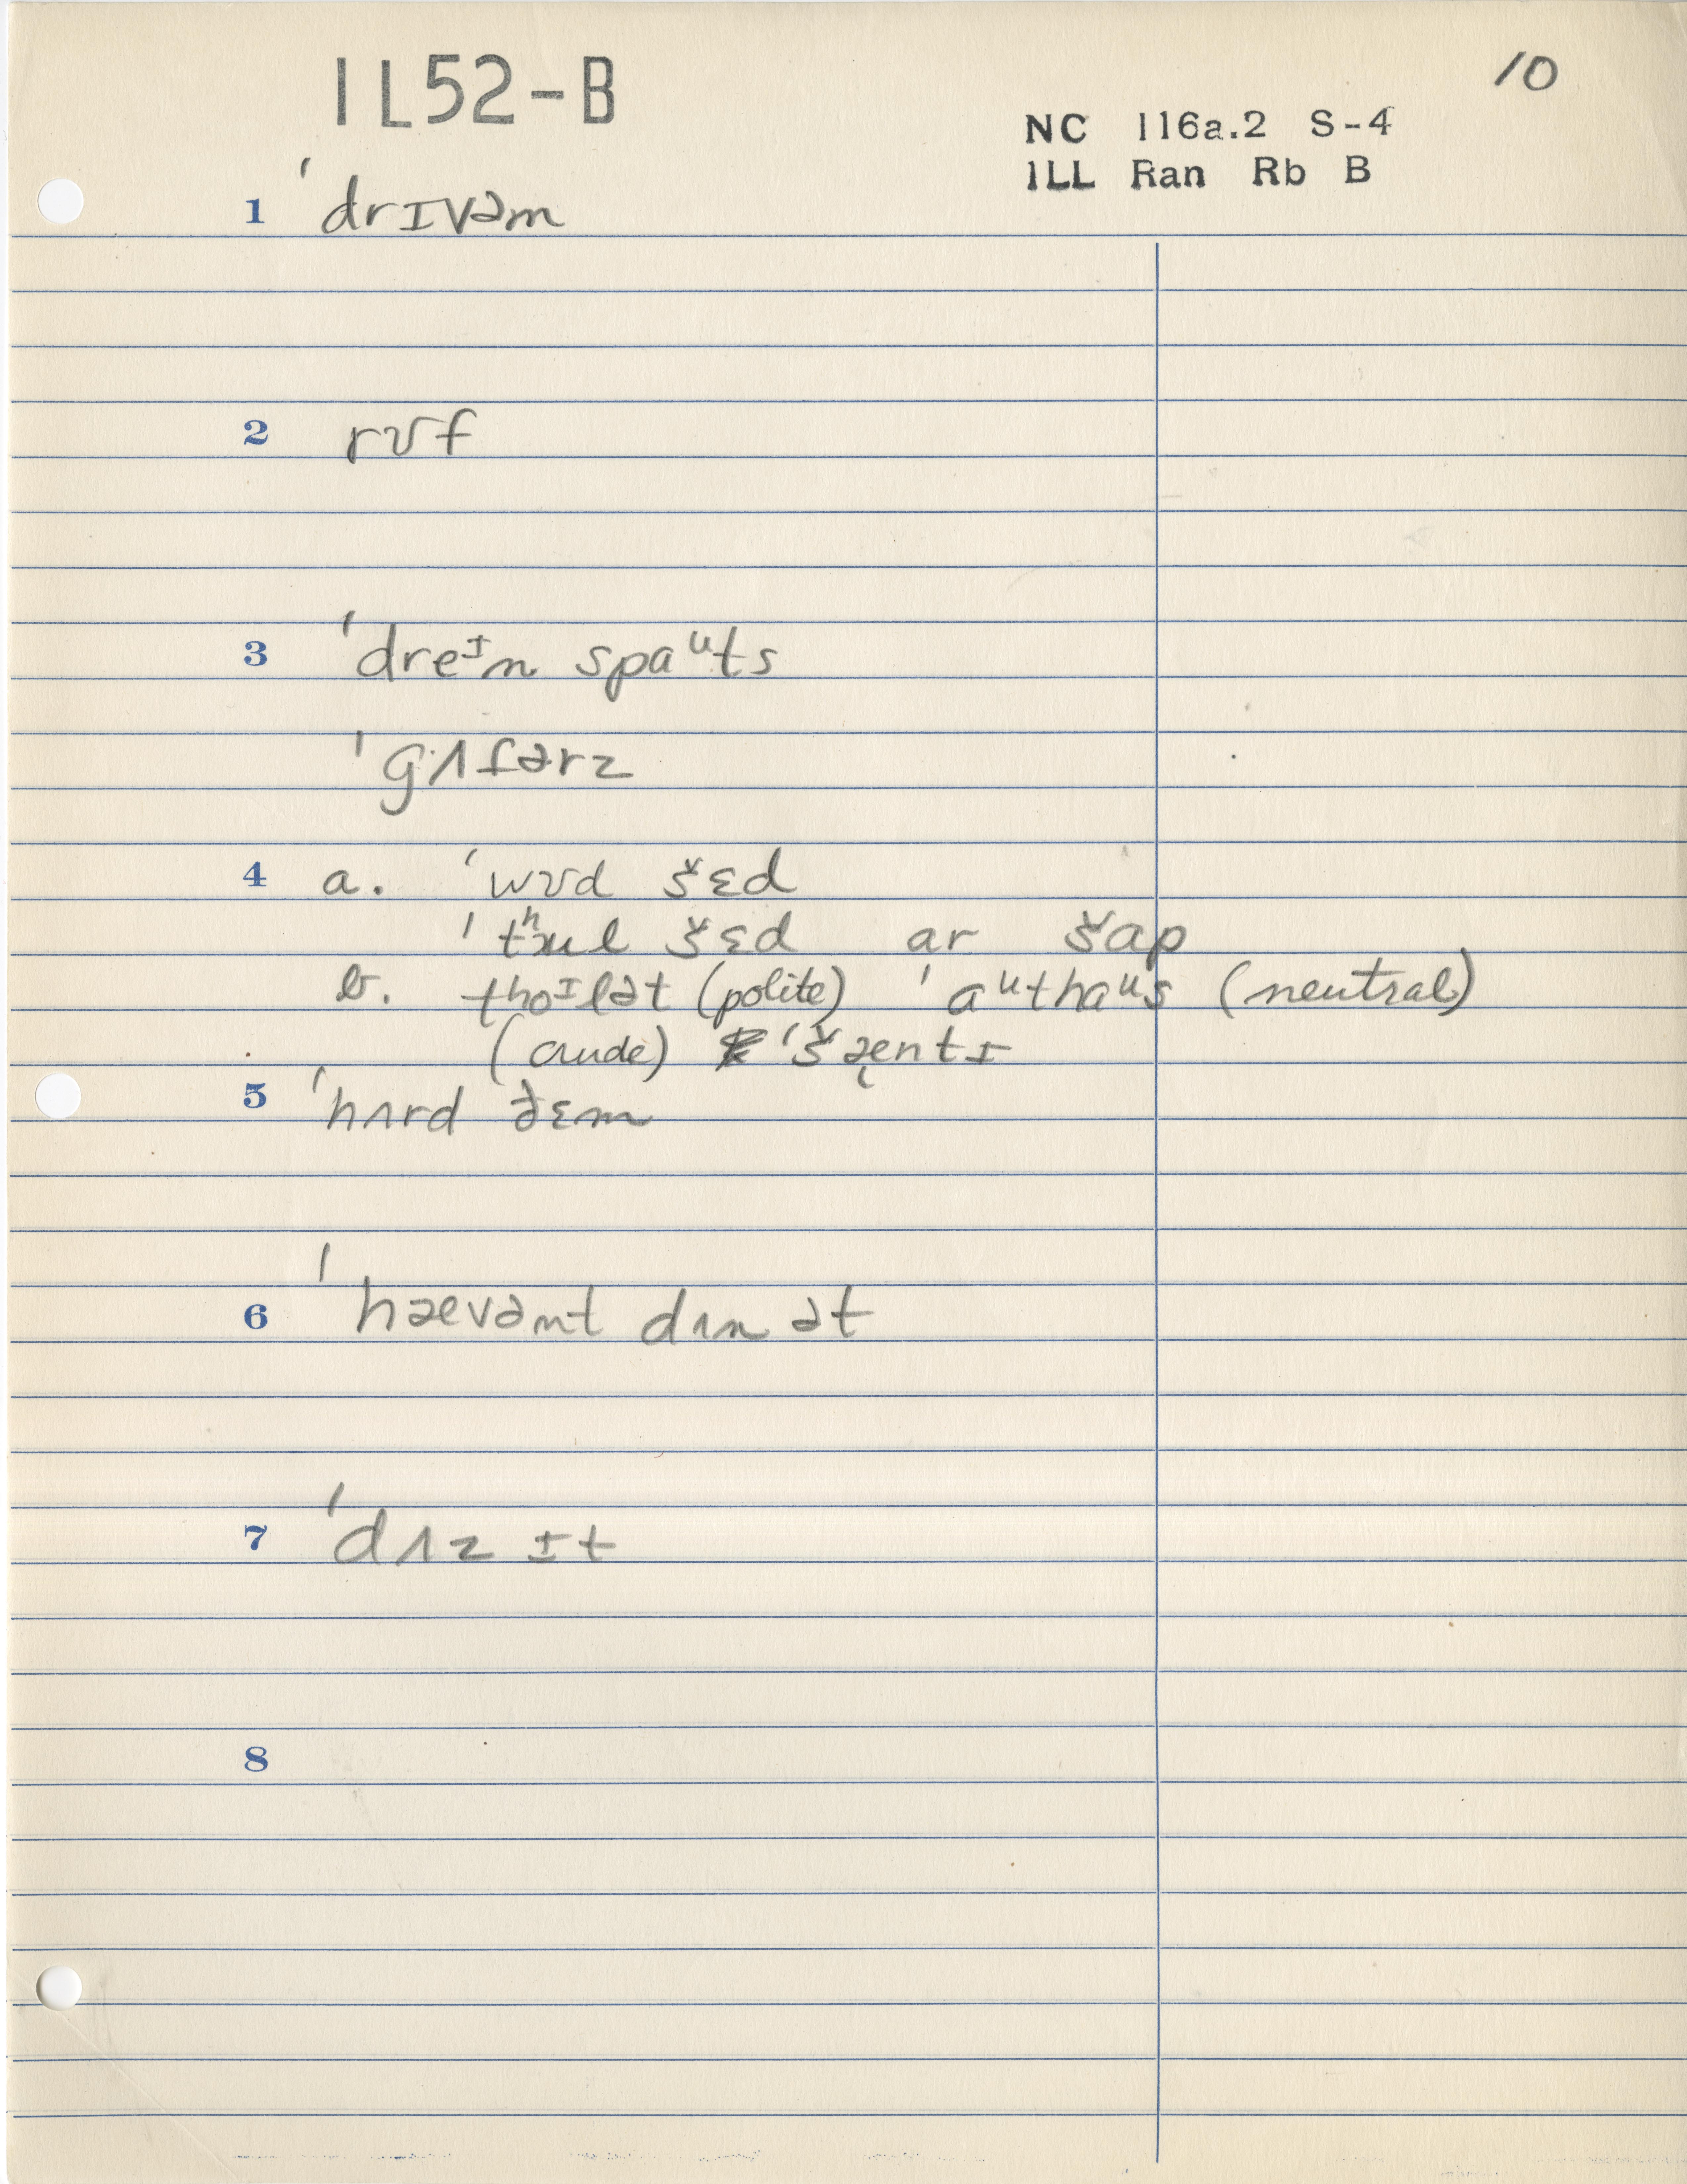 1L52-B
10
NC 116a.2 S-4
1LL Ran Rb B
1 ˈdrɪvəm
2 rʊf
3 ˈdreᶦn spaᵘts
ˈgʌfərz
4 a. ˈwʊd šɛd
ˈtʰul šɛd ar šap
b. thoᶦlət (polite) ˈaᵘthaᵘs (neutral)
(crude) ˈšæ̨entɪ
5 ˈhʌrd ðɛm
6 ˈhævənt dʌn ət
7 ˈdʌz ɪt
8